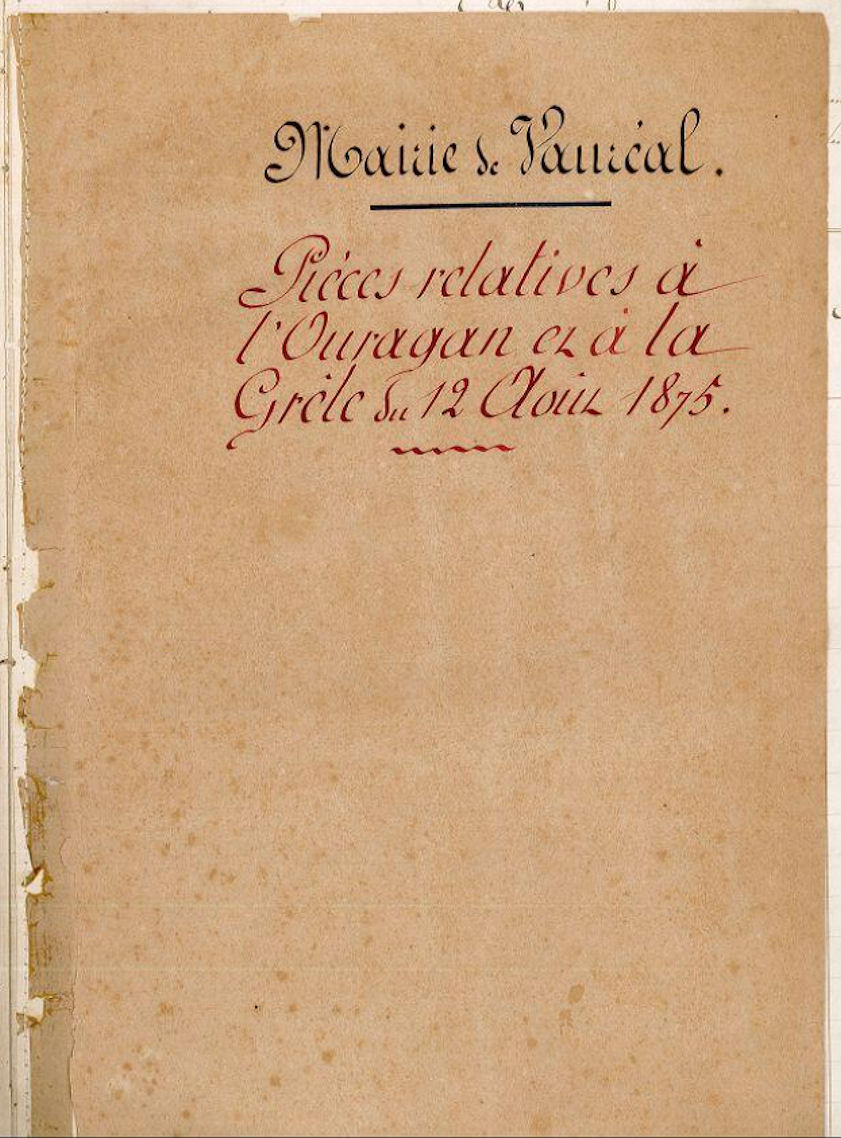 Mairie de Vauréal.
Pièces relatives à
l'Ouragan et à la
Grêle du 12 Août 1875.